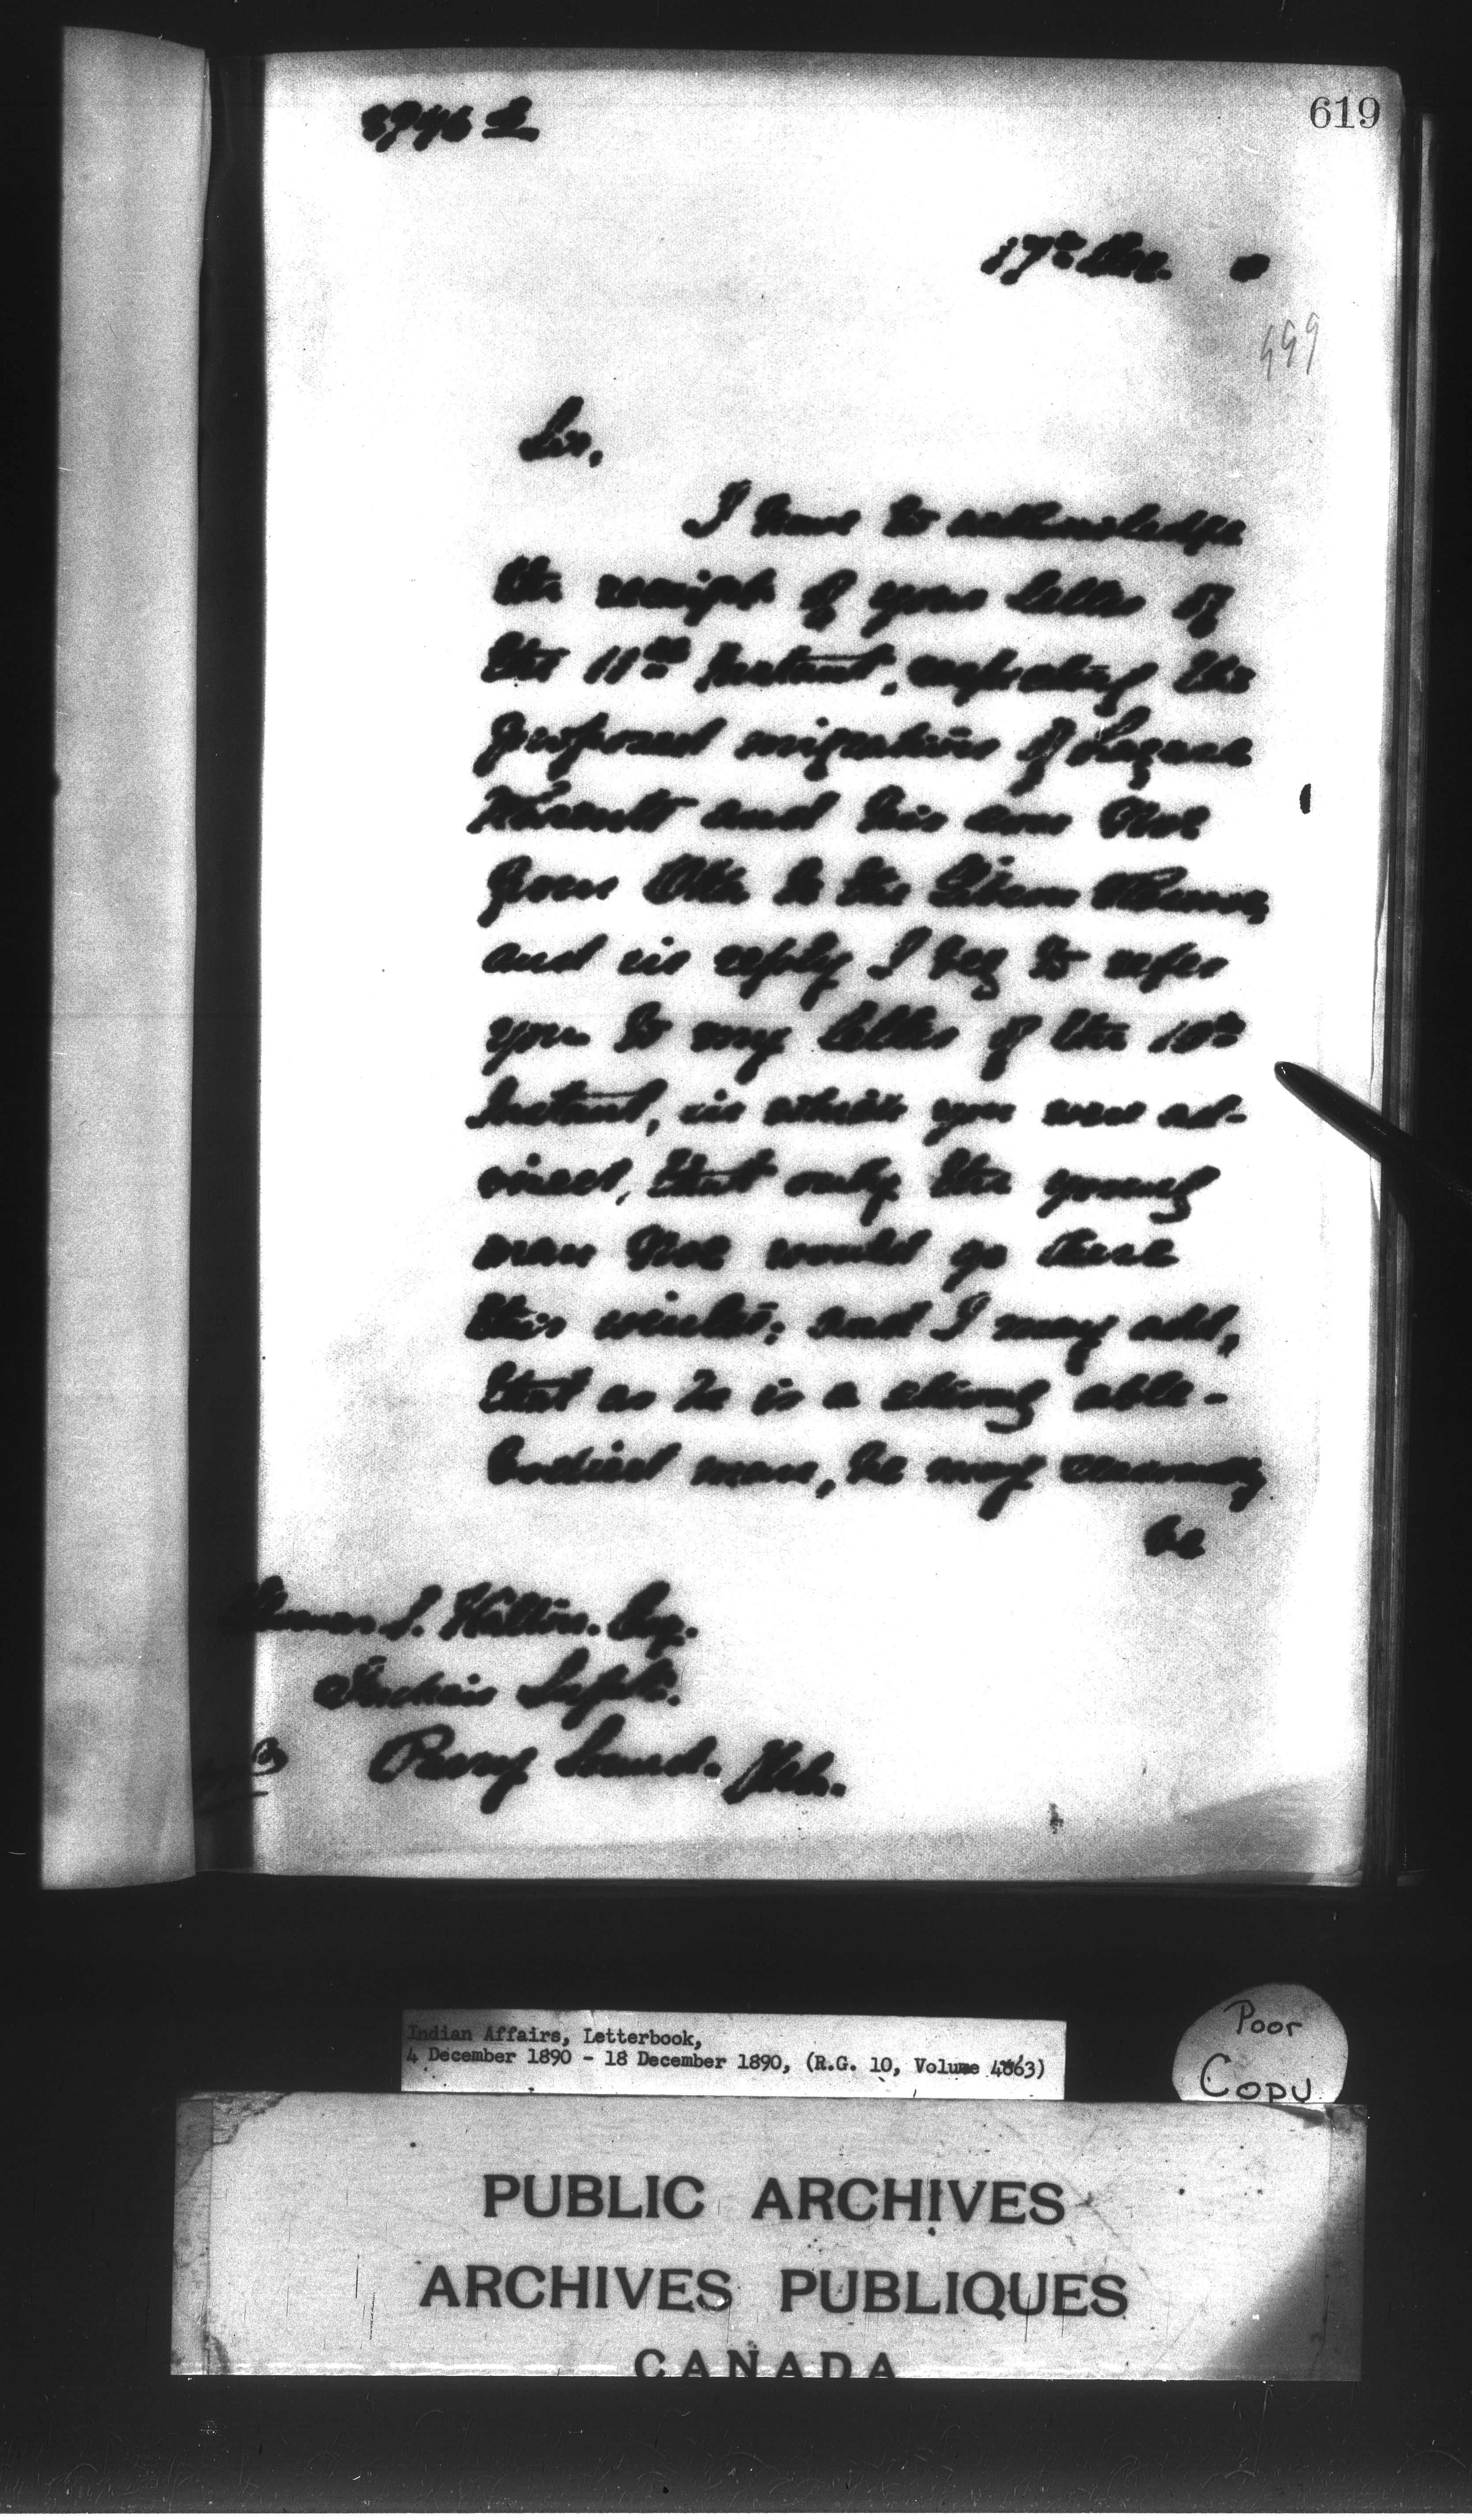 619
17th Dec. 0
499
Sir,
I have to acknowledge
the receipt of your letter of
the 11th Instant, respecting the
proposed migration of Lazare
and his son Noe
from Oka to the Gibson Reserve,
and in reply I beg to refer
you to my letter of the 10th
Instant, in which you were ad-
vised, that only the young
man Noe would go there
this winter; and I may add,
that as he is a strong able-
bodied man, he may reasonably
be
Thomas S. Walton. Esq.
Indian Supt.
Parry Sound. Ont.
Indian Affairs, Letterbook,
4 December 1890 - 18 December 1890, (R.G. 10, Volume 4863)
Poor
Copy
PUBLIC ARCHIVES
ARCHIVES PUBLIQUES
CANADA